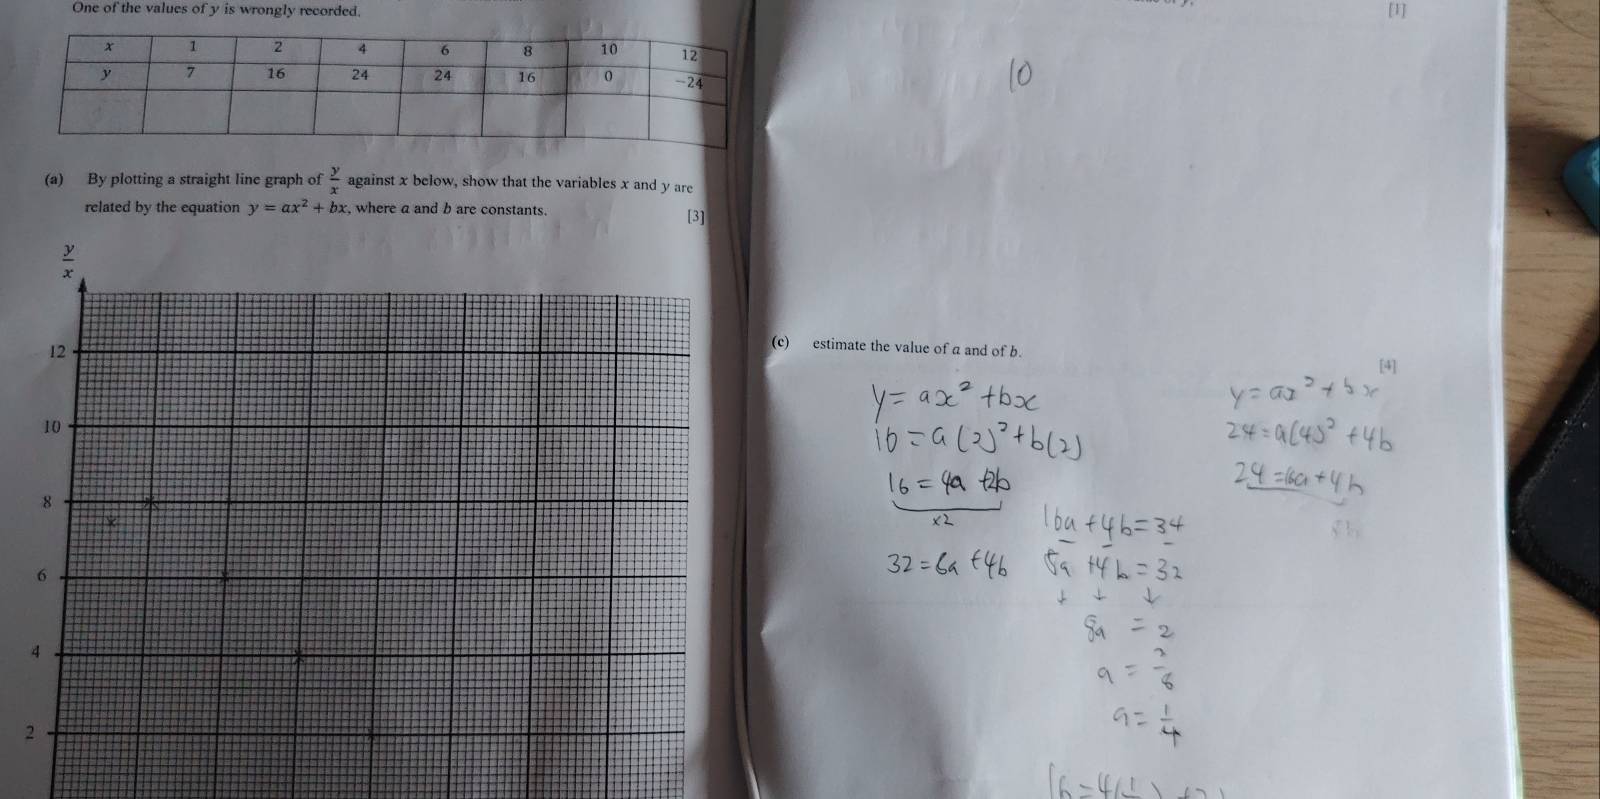 One of the values of y is wrongly recorded.
x 1 2 4 6 8 10 12
y 7 16 24 24 16 0 −24
(a) By plotting a straight line graph of y/x against x below, show that the variables x and y are
related by the equation y = ax² + bx, where a and b are constants.
[3]
y/x
12
10
8
6
4
2
[1]
10
(c) estimate the value of a and of b.
[4]
y = ax² + bx
16 = a(2)² + b(2)
16 = 4a + 2b
×2
32 = 8a + 4b
16a + 4b = 34
8a + 4b = 32
8a = 2
a = 2/8
a = 1/4
y = ax² + bx
24 = a(4)² + 4b
24 = 16a + 4b